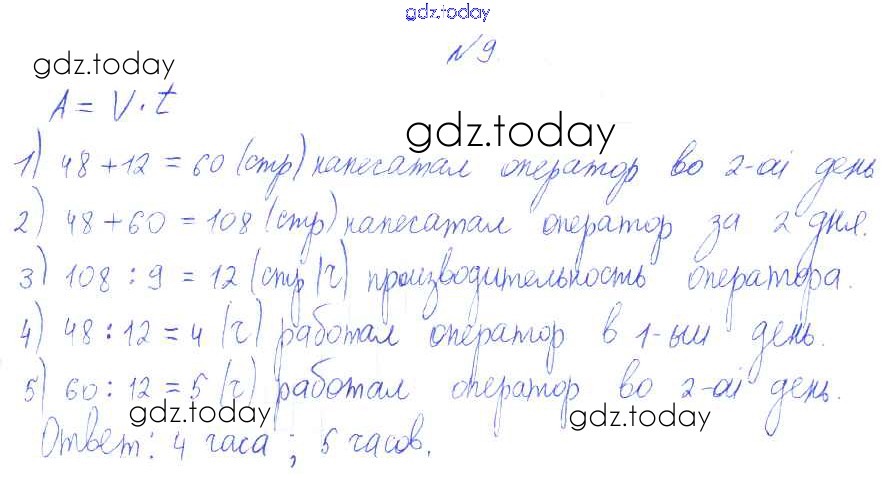 gdz.today
№9.
gdz.today
A = V · t
gdz.today
1) 48 + 12 = 60 (стр) напесатал оператор во 2-ой день
2) 48 + 60 = 108 (стр) напесатал оператор за 2 дня.
3) 108 : 9 = 12 (стр/ч) производительность оператора.
4) 48 : 12 = 4 (ч) работал оператор в 1-ый день.
5) 60 : 12 = 5 (ч) работал оператор во 2-ой день.
gdz.today gdz.today
Ответ: 4 часа ; 5 часов.